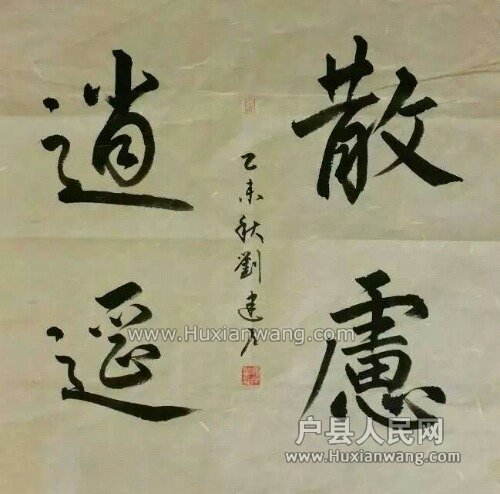 散慮
逍遥
乙未秋劉建
户县人民网
www.Huxianwang.com
www.Huxianwang.com